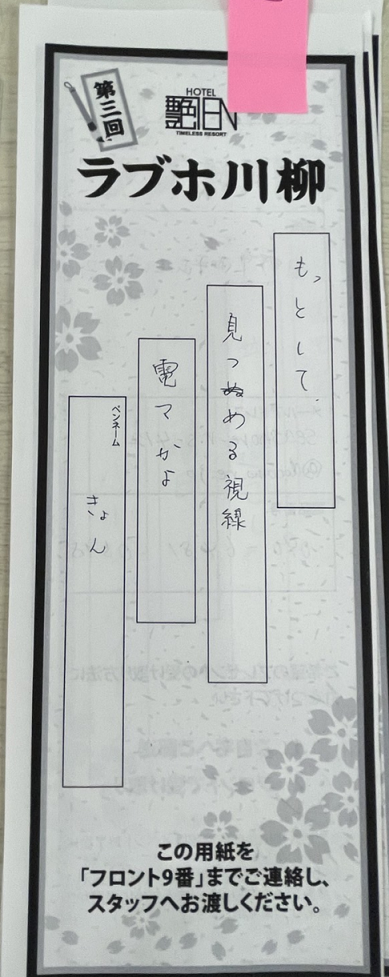 第三回
HOTEL
艶EN
TIMELESS RESORT
ラブホ川柳
もっとして、
見つめる視線
電マかよ
ペンネーム
きょん
この用紙を
「フロント9番」までご連絡し、
スタッフへお渡しください。